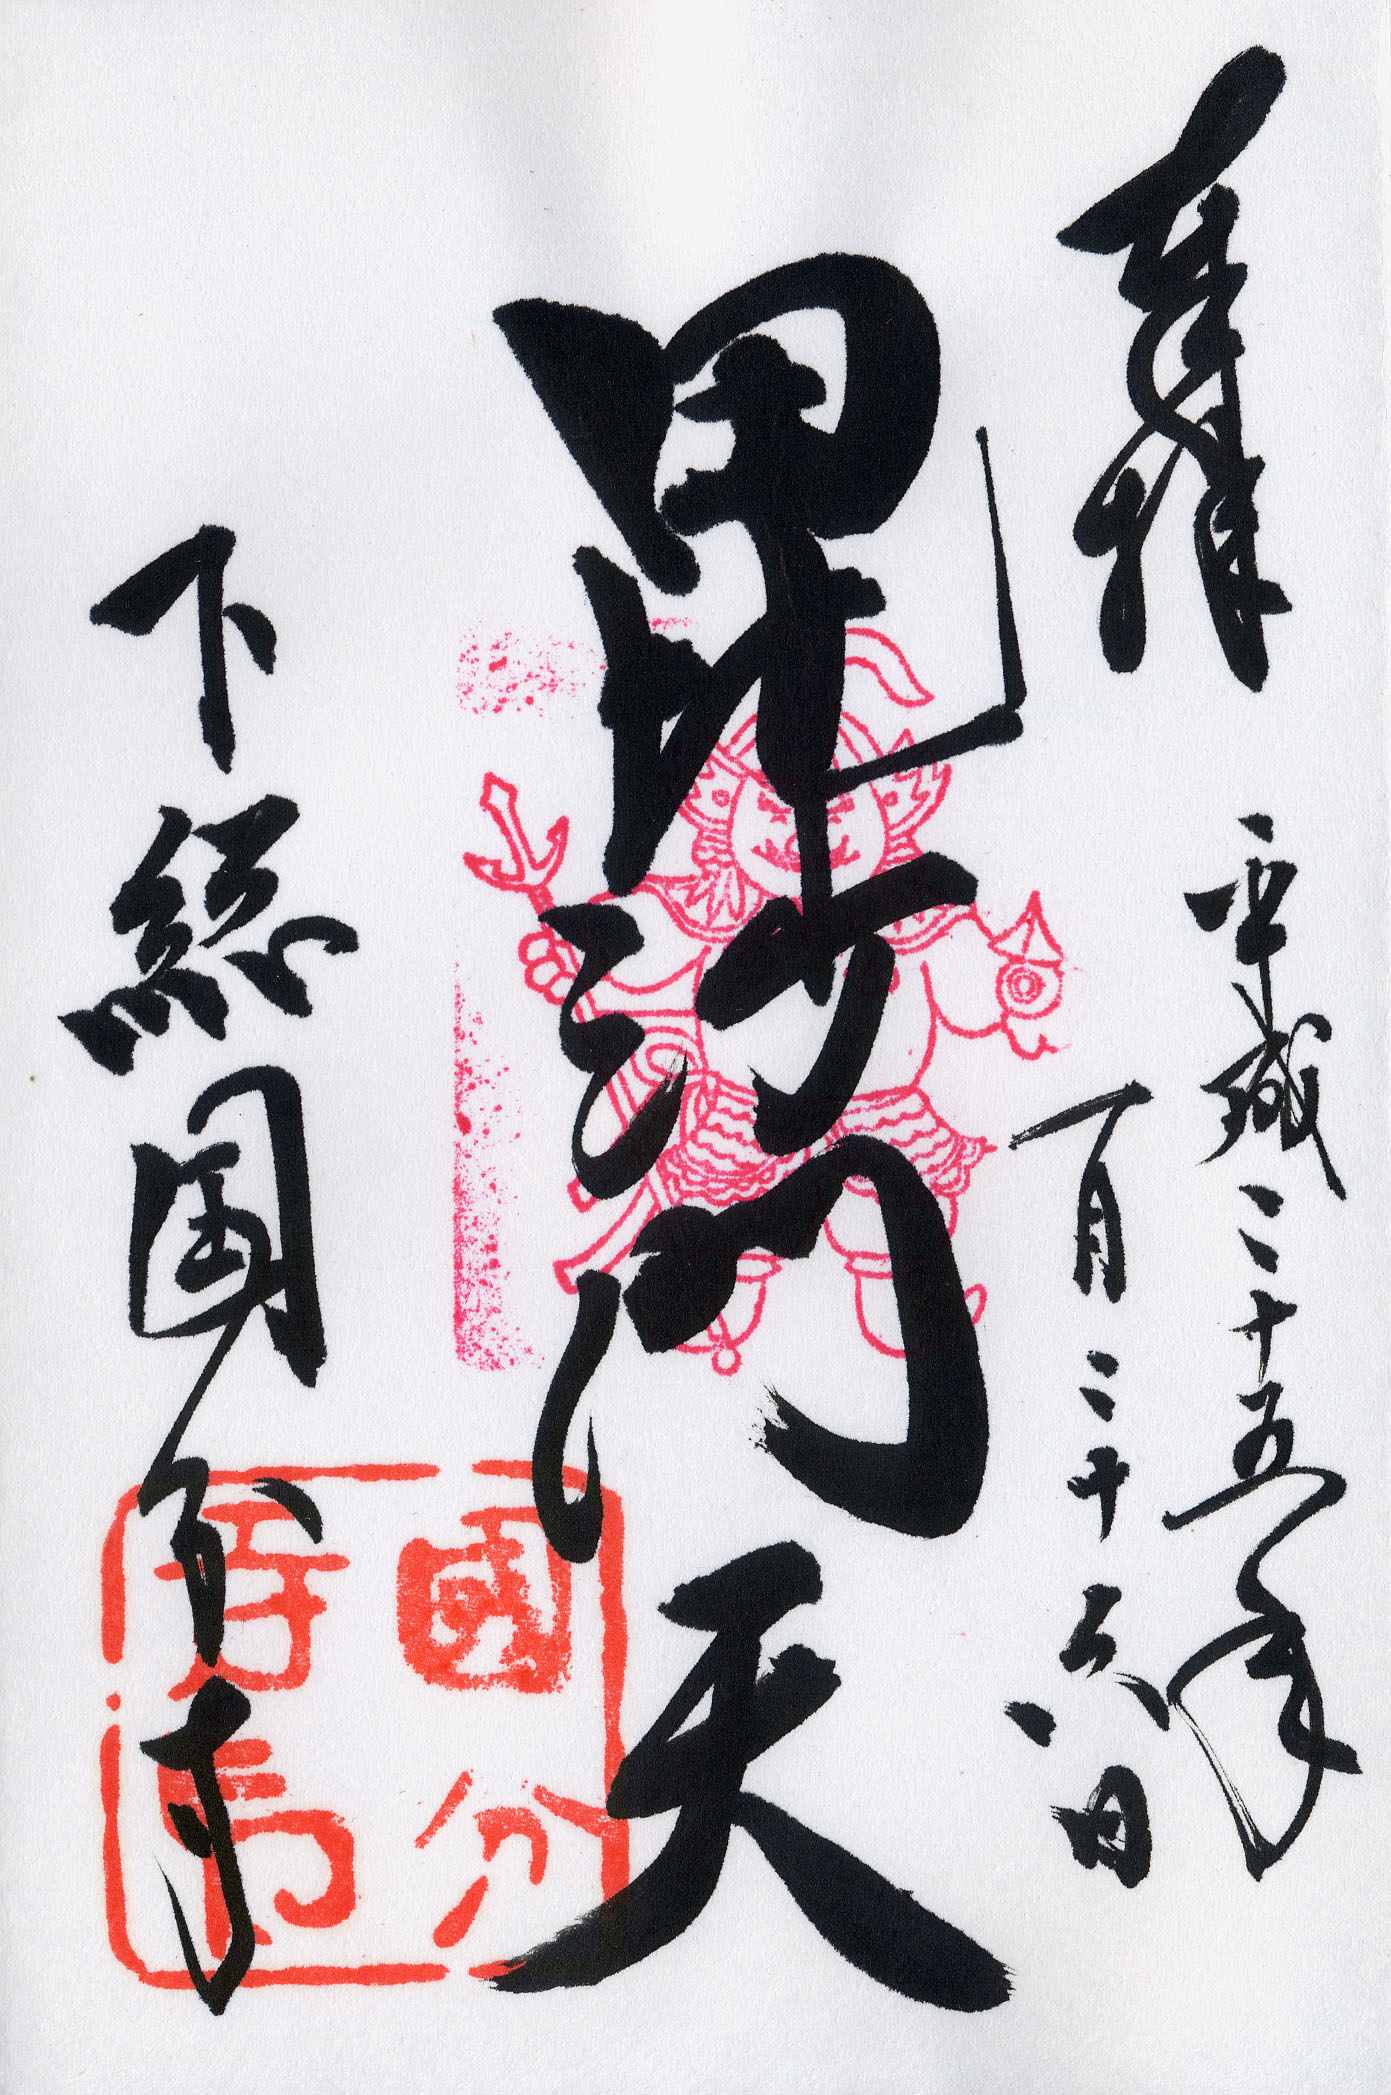 奉拝
平成二十五年
一月二十六日
毘沙門天
下総国分寺
國分
寺